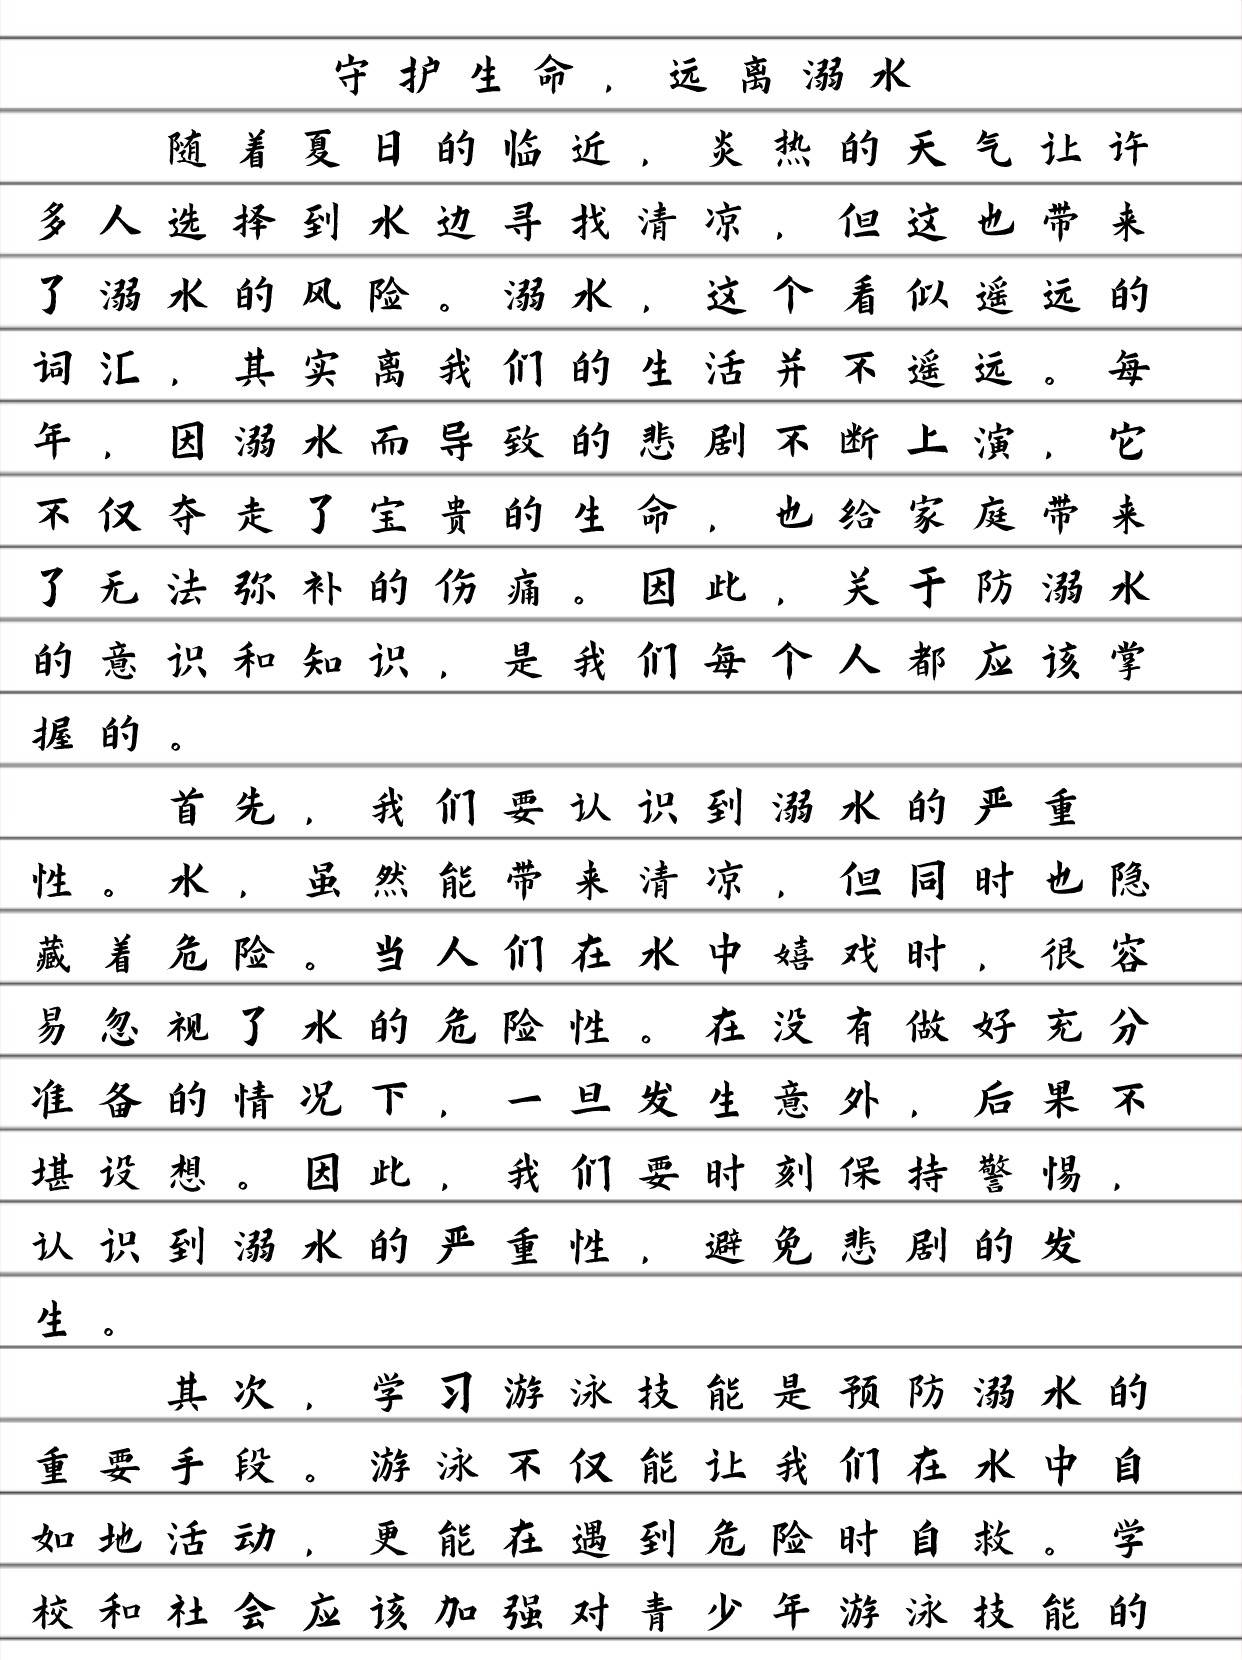 守护生命，远离溺水
随着夏日的临近，炎热的天气让许
多人选择到水边寻找清凉，但这也带来
了溺水的风险。溺水，这个看似遥远的
词汇，其实离我们的生活并不遥远。每
年，因溺水而导致的悲剧不断上演，它
不仅夺走了宝贵的生命，也给家庭带来
了无法弥补的伤痛。因此，关于防溺水
的意识和知识，是我们每个人都应该掌
握的。
首先，我们要认识到溺水的严重
性。水，虽然能带来清凉，但同时也隐
藏着危险。当人们在水中嬉戏时，很容
易忽视了水的危险性。在没有做好充分
准备的情况下，一旦发生意外，后果不
堪设想。因此，我们要时刻保持警惕，
认识到溺水的严重性，避免悲剧的发
生。
其次，学习游泳技能是预防溺水的
重要手段。游泳不仅能让我们在水中自
如地活动，更能在遇到危险时自救。学
校和社会应该加强对青少年游泳技能的